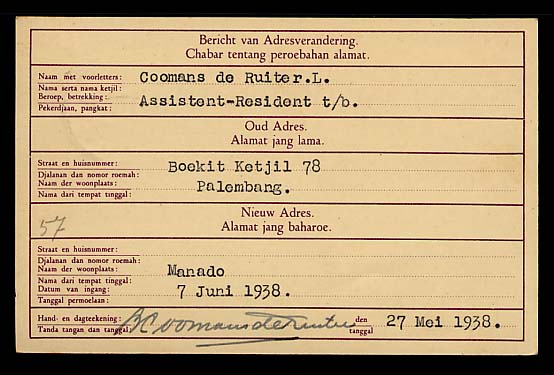 Bericht van Adresverandering.
Chabar tentang peroebahan alamat.
Naam met voorletters: Coomans de Ruiter.L.
Nama serta nama ketjil:
Beroep, betrekking: Assistent-Resident t/b.
Pekerdjaan, pangkat:
Oud Adres.
Alamat jang lama.
Straat en huisnummer: Boekit Ketjil 78
Djalanan dan nomor roemah:
Naam der woonplaats: Palembang.
Nama dari tempat tinggal:
Nieuw Adres.
57 Alamat jang baharoe.
Straat en huisnummer:
Djalanan dan nomor roemah:
Naam der woonplaats: Manado
Nama dari tempat tinggal:
Datum van ingang: 7 Juni 1938.
Tanggal permoelaan:
Hand- en dagteekening: LCoomansdeRuiter den 27 Mei 1938.
Tanda tangan dan tanggal: tanggal